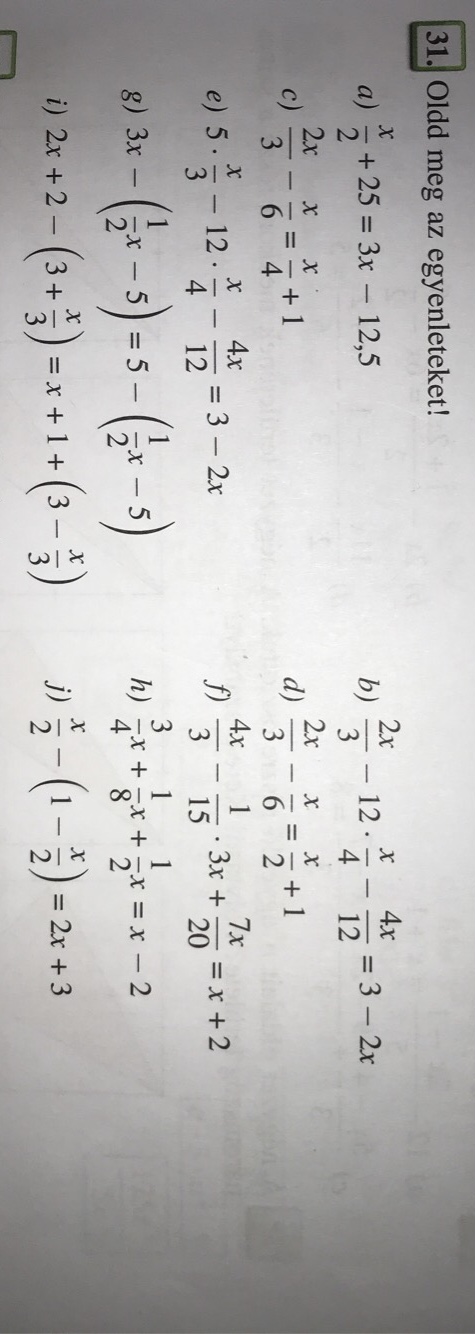 31. Oldd meg az egyenleteket!
a) x/2 + 25 = 3x − 12,5
b) 2x/3 − 12 · x/4 − 4x/12 = 3 − 2x
c) 2x/3 − x/6 = x/4 + 1
d) 2x/3 − x/6 = x/2 + 1
e) 5 · x/3 − 12 · x/4 − 4x/12 = 3 − 2x
f) 4x/3 − 1/15 · 3x + 7x/20 = x + 2
g) 3x − (1/2 x − 5) = 5 − (1/2 x − 5)
h) 3/4 x + 1/8 x + 1/2 x = x − 2
i) 2x + 2 − (3 + x/3) = x + 1 + (3 − x/3)
j) x/2 − (1 − x/2) = 2x + 3